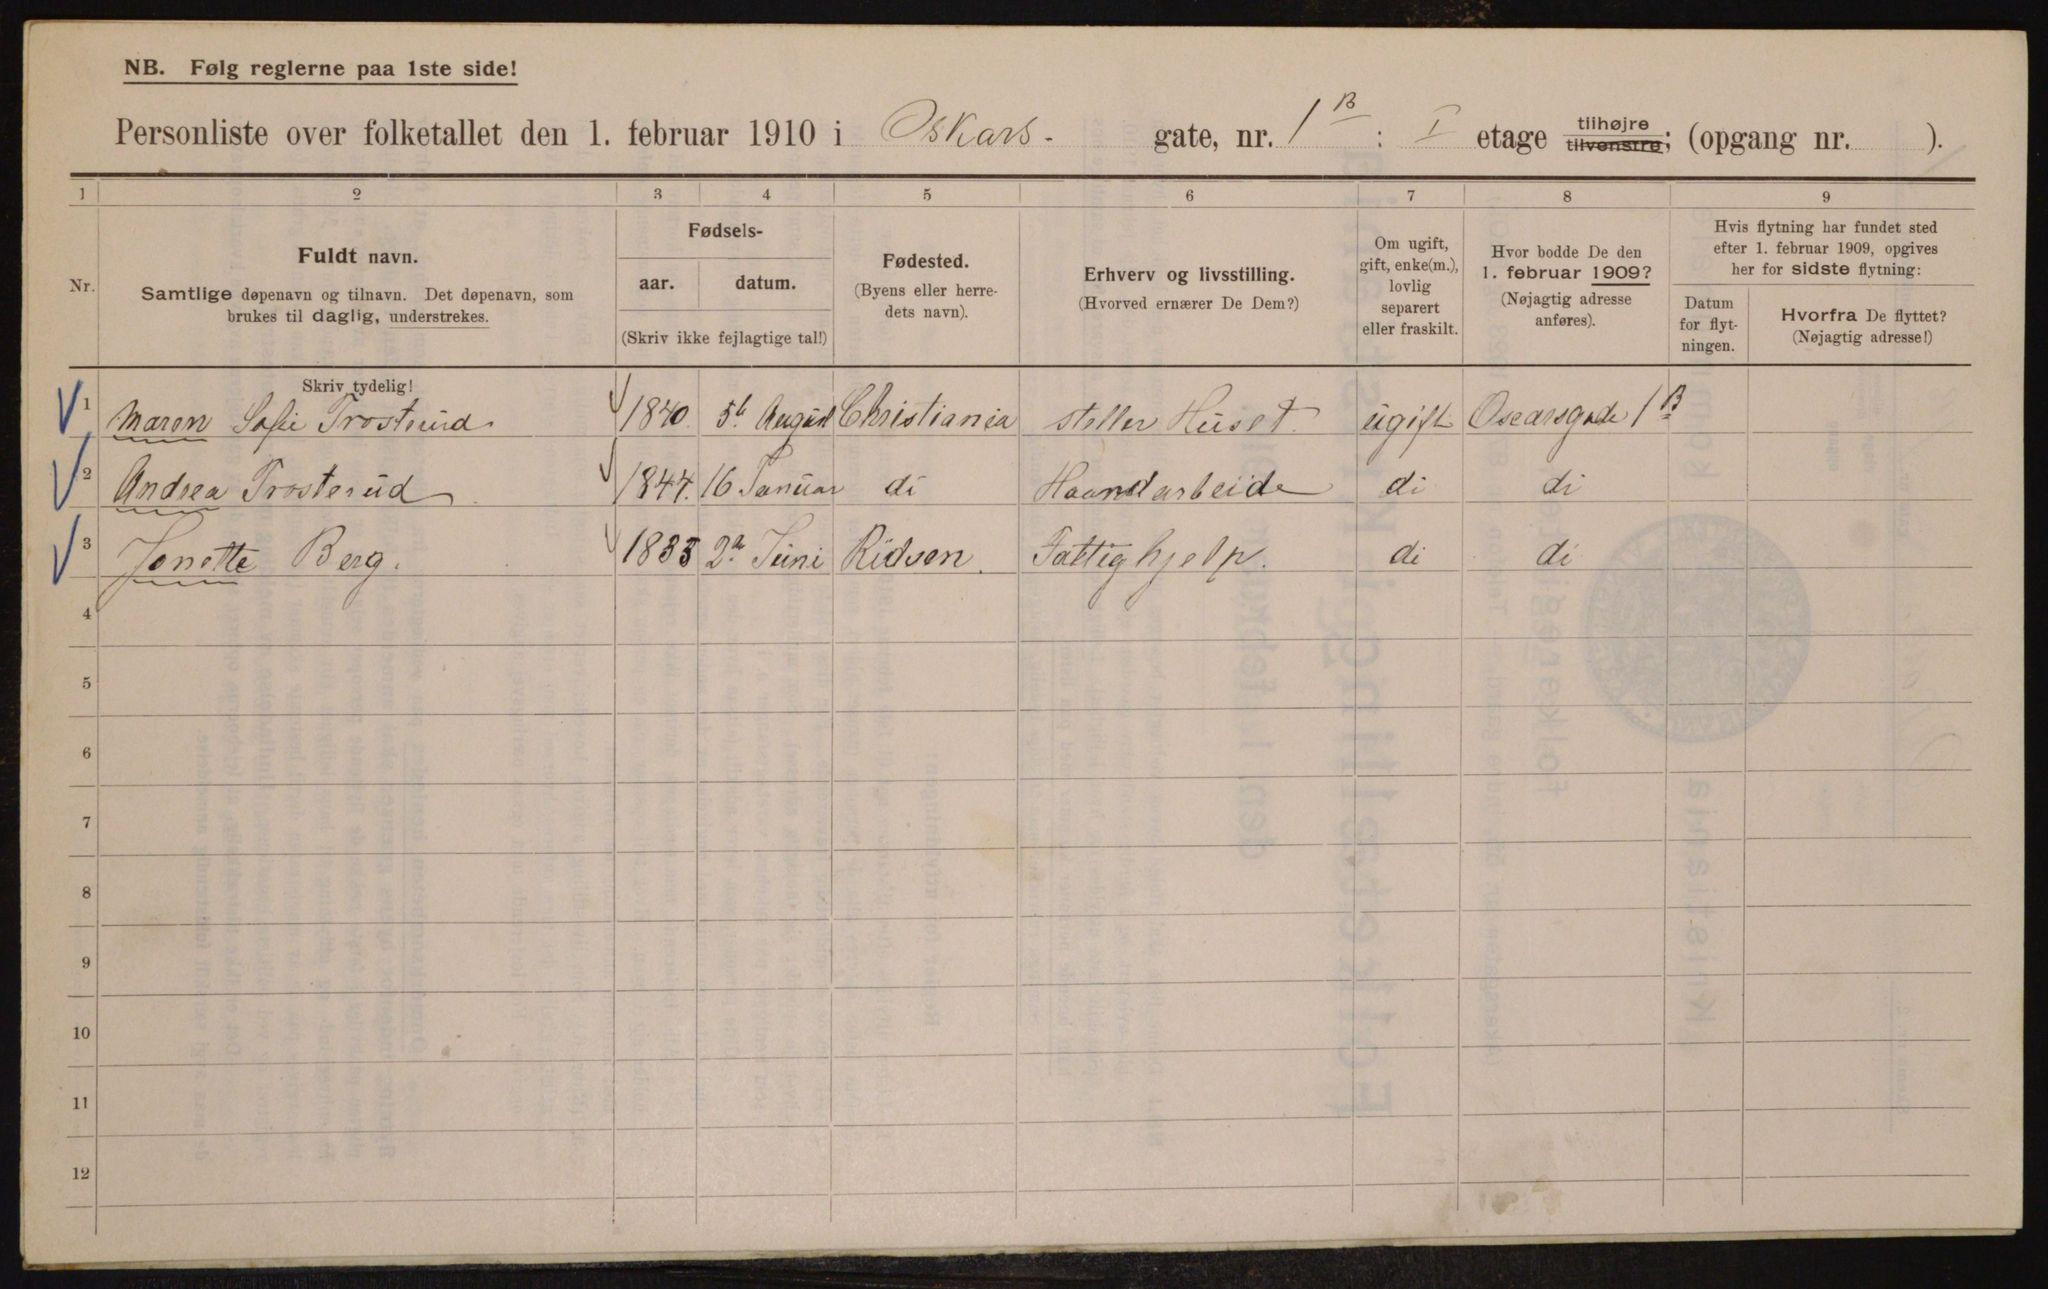 NB. Følg reglerne paa 1ste side!
Personliste over folketallet den 1. februar 1910 i Oskars- gate, nr. 1 B : I etage tilhøjre tilvenstre; (opgang nr. ).
1 2 3 4 5 6 7 8 9
Nr.
Fuldt navn.
Samtlige døpenavn og tilnavn. Det døpenavn, som
brukes til daglig, understrekes.
Fødsels-
aar. datum.
(Skriv ikke fejlagtige tal!)
Fødested.
(Byens eller herre-
dets navn).
Erhverv og livsstilling.
(Hvorved ernærer De Dem?)
Om ugift,
gift, enke(m.),
lovlig
separert
eller fraskilt.
Hvor bodde De den
1. februar 1909?
(Nøjagtig adresse
anføres).
Hvis flytning har fundet sted
efter 1. februar 1909, opgives
her for sidste flytning:
Datum
for flyt-
ningen.
Hvorfra De flyttet?
(Nøjagtig adresse!)
Skriv tydelig!
1 Maren Sofie Trosterud 1840 5t August Christiania steller Huset. ugift Oscarsgade 1 B
2 Andrea Trosterud 1844. 16 Januar di Haandarbeide di di
3 Jonette Berg. 1835 2n Juni Fattighjelp. di di
4
5
6
7
8
9
10
11
12